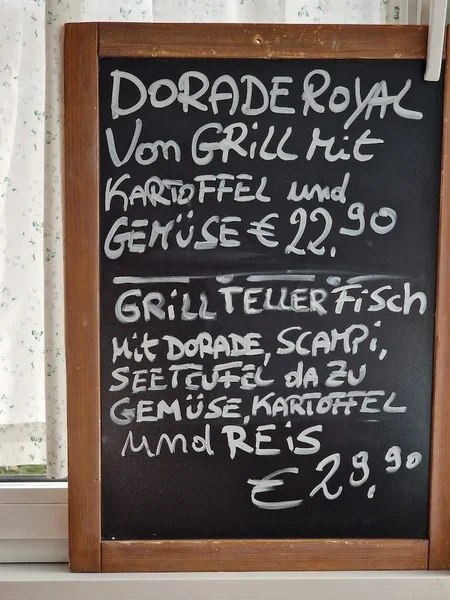 DORADE ROYAL
Von GRILL Mit
KARTOFFEL und
GEMÜSE € 22.90
GRILL TELLER Fisch
Mit DORADE, SCAMPI,
SEETEUFEL da ZU
GEMÜSE, KARTOFFEL
und REIS
€ 29.90